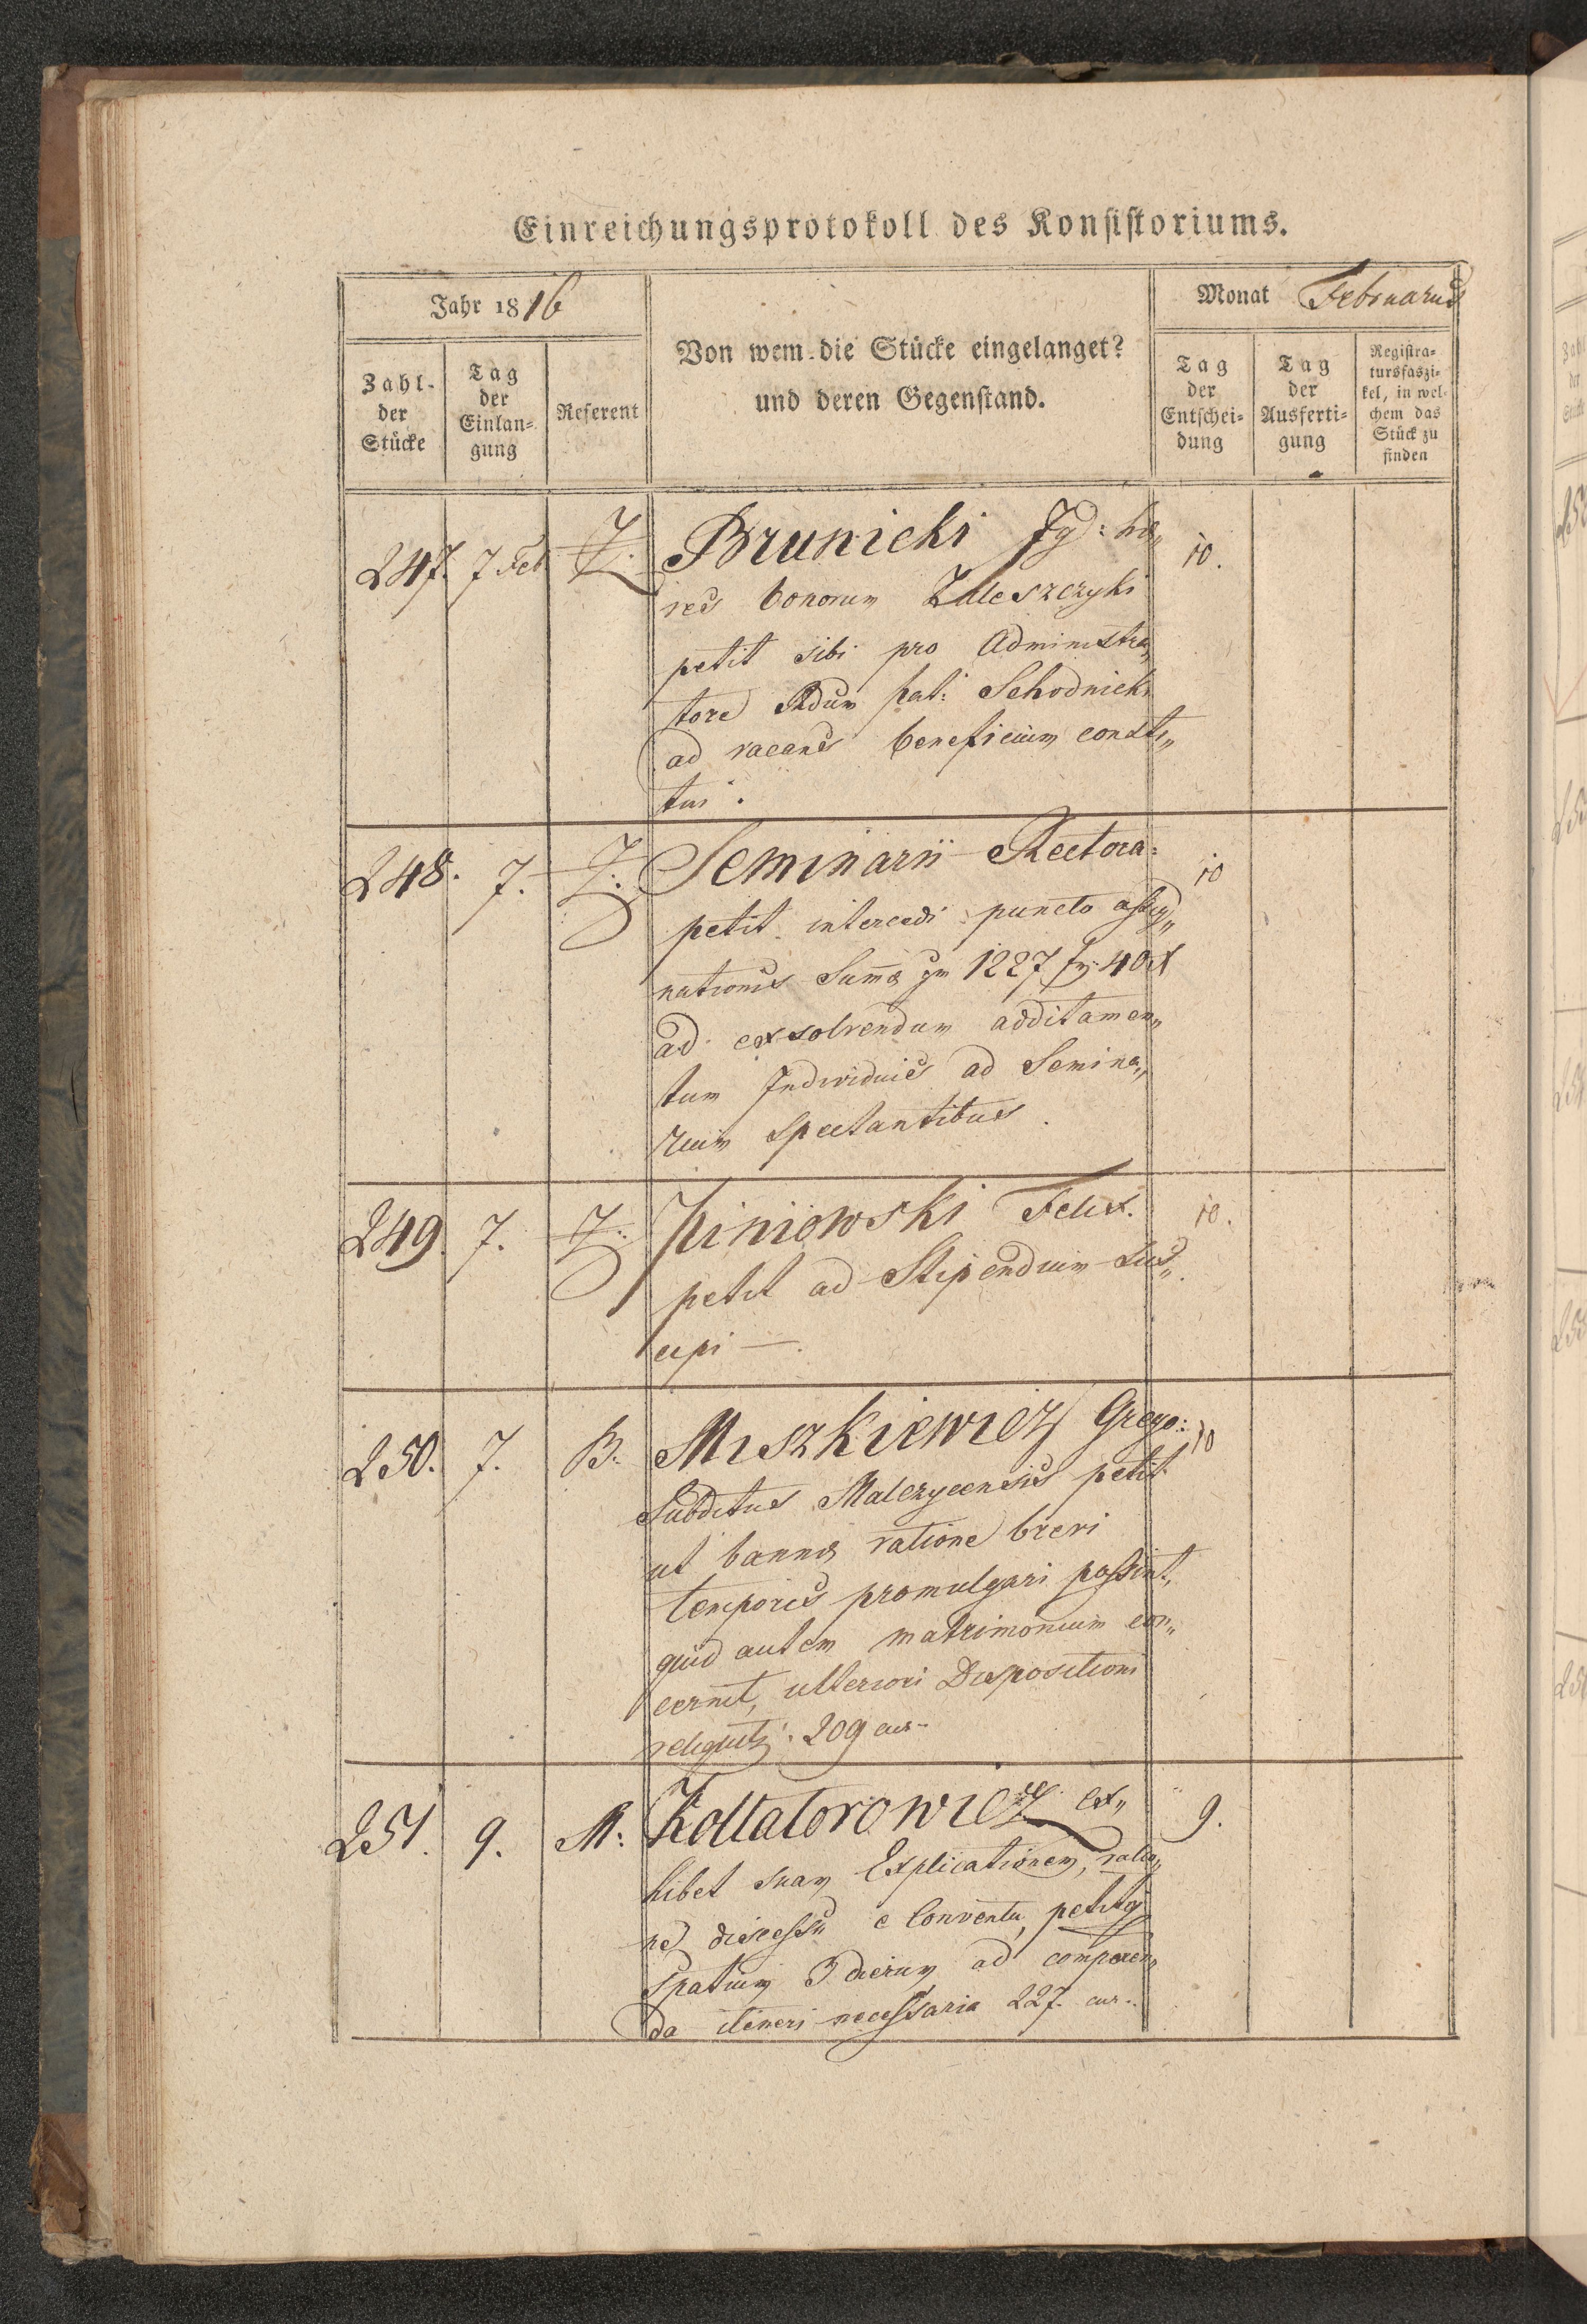 Einreichungsprotokoll des Konsistoriums.
Jahr 1816
Monat Februarius
Zahl der Stücke
Tag der Einlangung
Referent
Von wem die Stücke eingelanget?
und deren Gegenstand.
Tag der Entschei= dung
Tag der Ausferti= gung
Registra= tursfaszi= kel, in wel= chem das Stück zu finden
247. 7 Feb Z. Brunicki Ig: hæ„ 10.
res bonorum Zaleszczyki
petit sibi pro Administra„
tore Rdum pat: Schodnicki
ad vacans beneficium consti„
tui.
248. 7. Z. Seminarii Rectora: 10
petit intercedi puncto assig„
nationis Summæ 1227 fr 40 x
ad exsolvendum additamen„
tum Individuis ad Semina„
rium Spectantibus.
249. 7. Z. Kiniowski Felix. 10.
petit ad Stipendium Sus„
cipi —.
250. 7. B. Miszkiewicz Grego: 10
Subditus Malczycensis petit
ut bannæ ratione brevi
temporis promulgari possint,
quid autem matrimonium con„
cernit, ulteriori Dispositioni
relinquit. 209 cur.
251. 9. M. Kołłatorowicz ex„ 9.
hibet suam Explicationem, ratio„
ne discessu e Conventu, petitq
spatium 3 dierum ad comparen„
da itineri necessaria 227. cur.